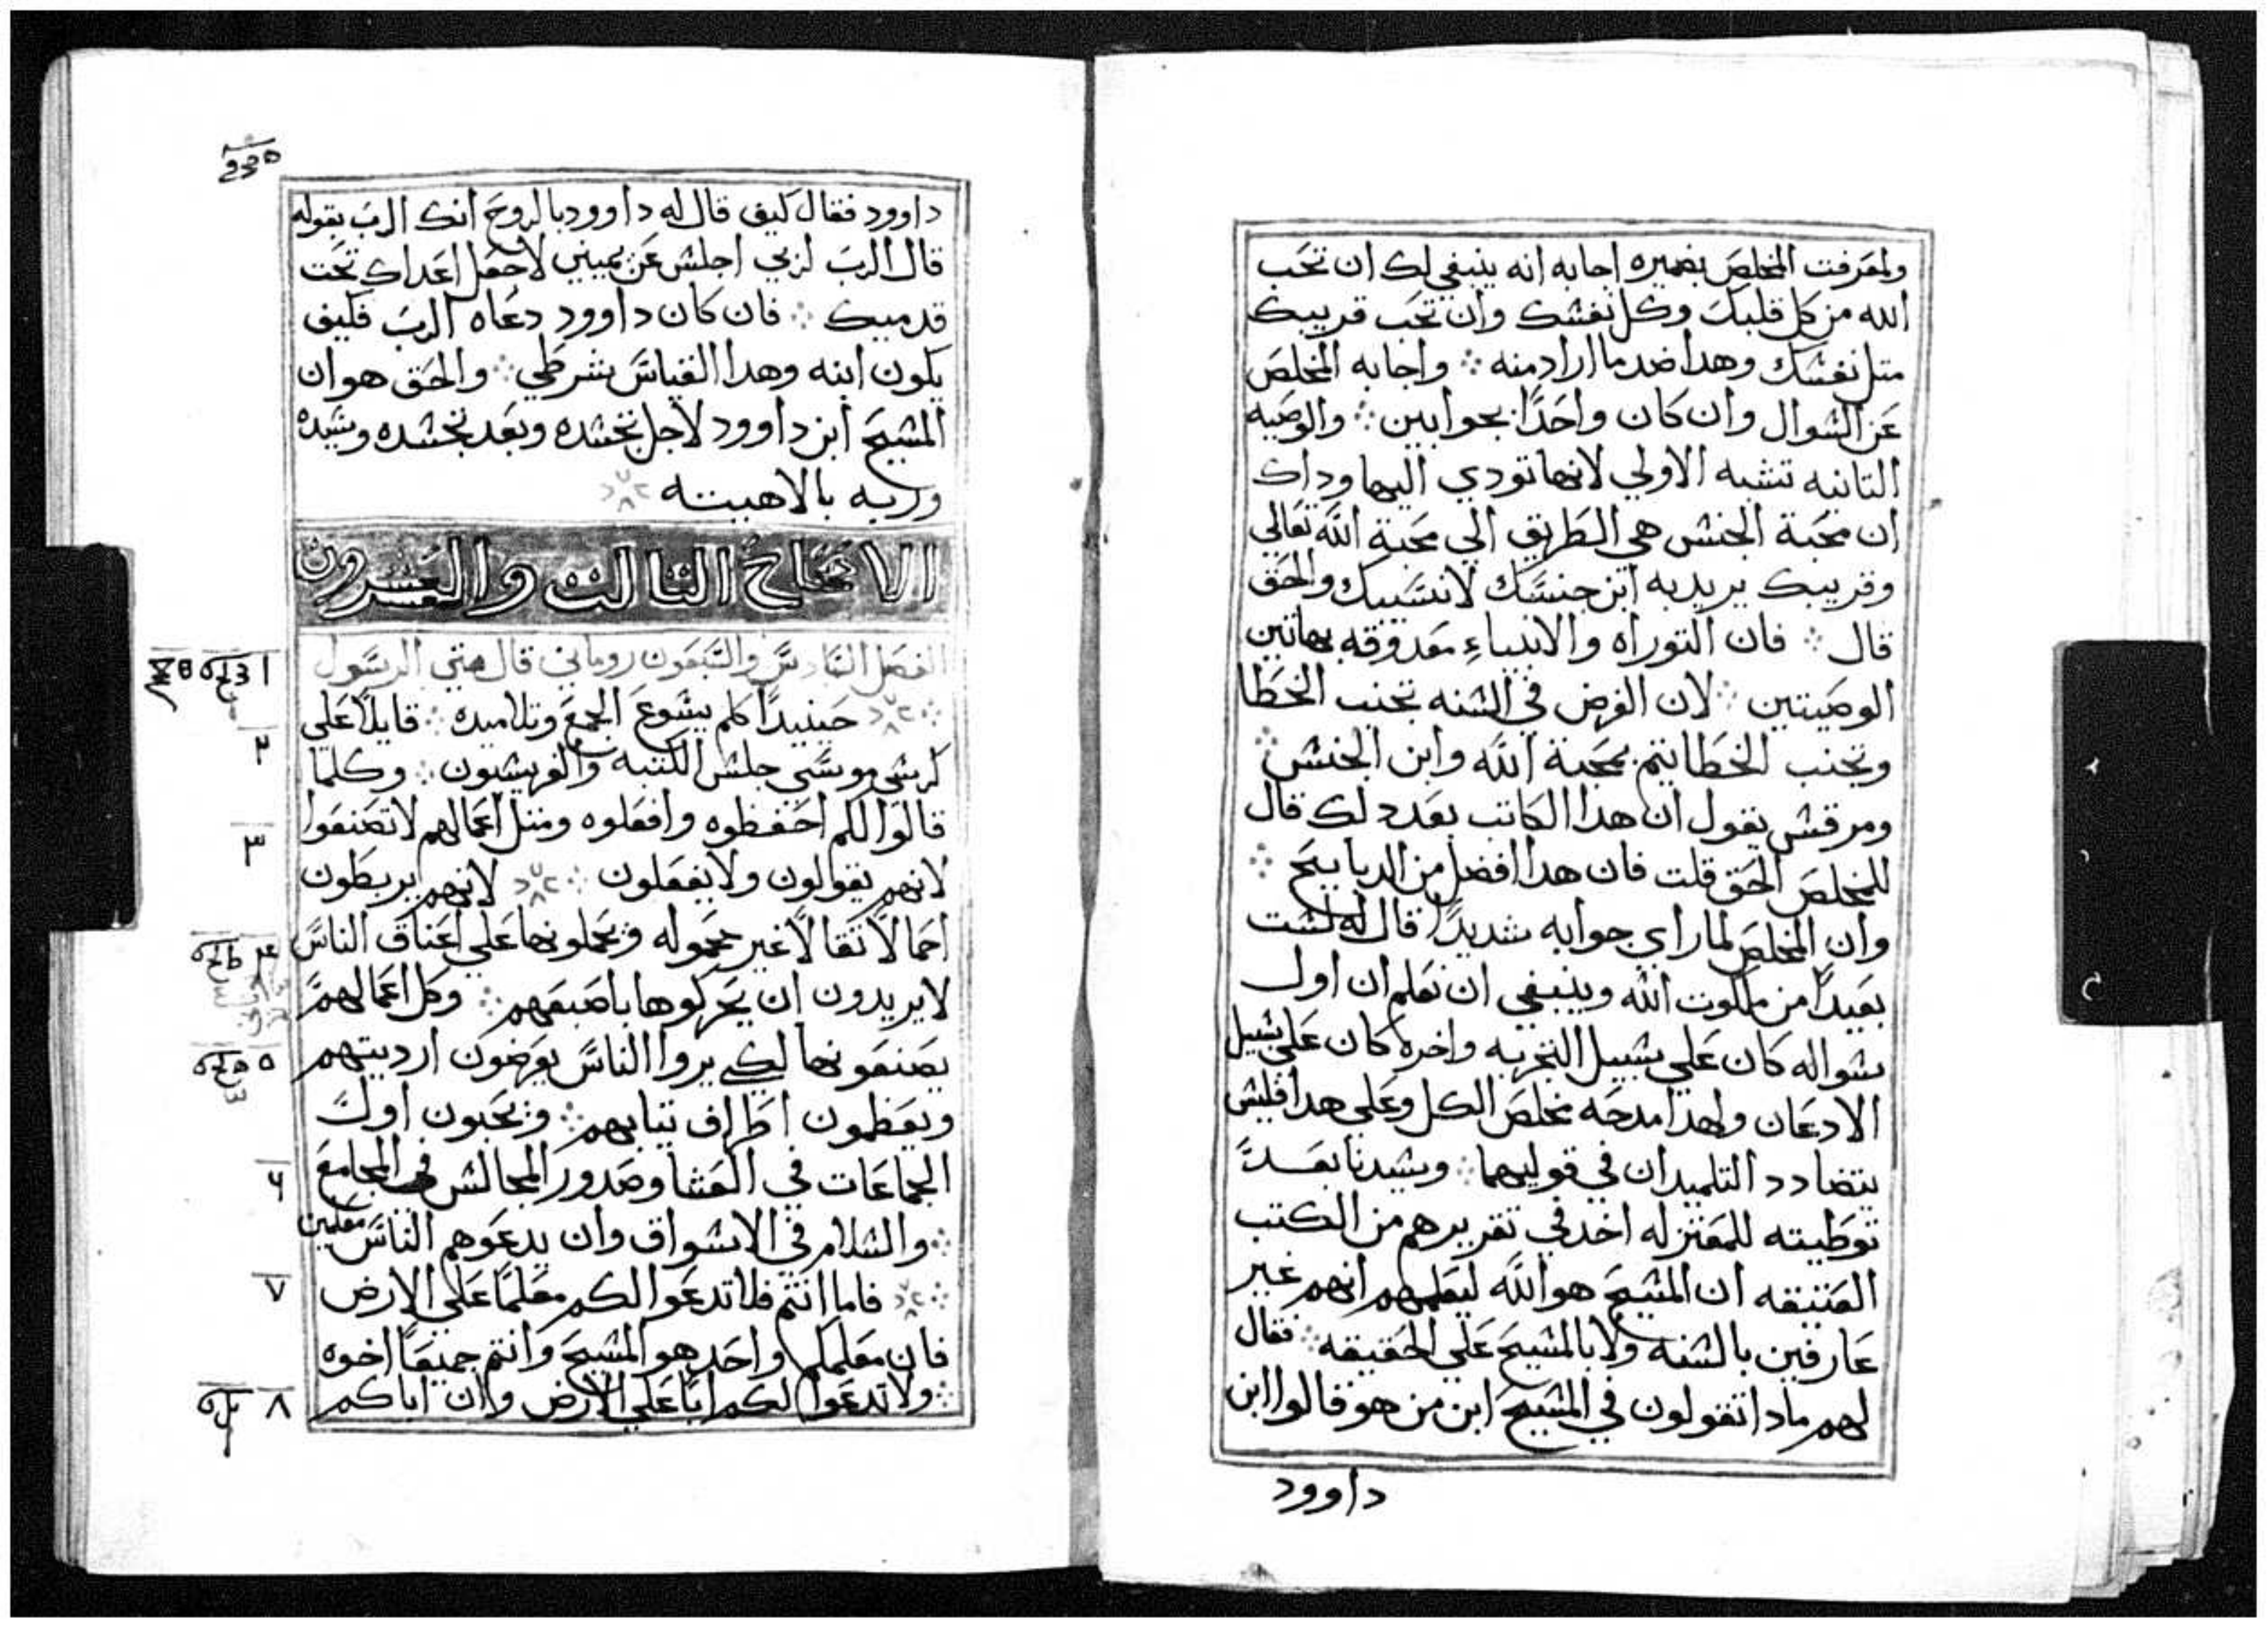 ولمعرفت المخلص بضميره اجابه انه ينبغي لك ان تحب
الله من كل قلبك وكل نفشك وان تحب قريبك
متل نفشك وهدا ضد ما اراد منه ⁘ واجابه المخلص
عن الشوال وان كان واحدًا بجوابين ⁘ والوصيه
التانيه تشبه الاولي لانها تودي اليها وداك
ان محبة الجنش هي الطريق الي محبة الله تعالي
وقريبك يريد به ابن جنشك لا نشيبك والحق
قال ⁘ فان التوراه والانبياء معدوقه بهاتين
الوصيتين ⁘ لان الغرض في الشنه تجنب الخطا
وتجنب الخطا يتم بمحبة الله وابن الجنش ⁘
ومرقش يقول ان هدا الكاتب بعد دلك قال
للمخلص الحق قلت فان هدا افضل من الدبايح ⁘
وان المخلص لما راي جوابه شديدًا قال له لشت
بعيدًا من ملكوت الله وينبغي ان تعلم ان اول
شواله كان علي شبيل التجربه واخره كان علي شبيل
الادعان ولهدا مدحه مخلص الكل وعلي هدا فليش
يتضادد التلميدان في قوليهما ⁘ وشيدنا بعد
توطيته للمعتزله اخد في تقريرهم من الكتب
العتيقه ان المشيح هو الله ليعلمهم انهم غير
عارفين بالشنه ولا بالمشيح علي الحقيقه ⁘ فقال
لهم مادا تقولون في المشيح ابن من هو فقالوا ابن
داوود
داوود فقال كيف قال له داوود بالروح انك الرب بقوله
قال الرب لربي اجلش عن يميني لاجعل اعداك تحت
قدميك ⁘ فان كان داوود دعاه الرب فكيف
يكون ابنه وهدا القياس شرطي ⁘ والحق هو ان
المشيح ابن داوود لاجل تجشده وبعد تجشده وشيده
وربه بالاهيته
الاصحاح التالت والعشرون
الفصل السادس والسبعون روماني قال متي الرسول
١
حينيدًا كلم يشوع الجمع وتلاميده ⁘ قايلًا علي
٢
كرشي موسي جلش الكتبه والفريشيون ⁘ وكلما
٣
قالوا لكم احفظوه وافعلوه ومتل اعمالهم لا تصنعوا
لانهم يقولون ولا يفعلون ⁘ لانهم يربطون
٤
احمالًا تقالًا غير محموله ويحملونها علي اعناق الناس
لا يريدون ان يحركوها باصبعهم ⁘ وكل اعمالهم
٥
يصنعونها لكي يروا الناس يعرضون ارديتهم
ويعظمون اطراف تيابهم ⁘ ويحبون اول
٦
الجماعات في العشا وصدور المجالش في المجامع
⁘ والشلام في الاشواق وان يدعوهم الناس معلمين
٧
⁘ فاما انتم فلا تدعوا لكم معلمًا علي الارض
فان معلمكم واحد هو المشيح وانتم جميعًا اخوه
٨
⁘ ولا تدعوا لكم ابًا علي الارض وان اباكم